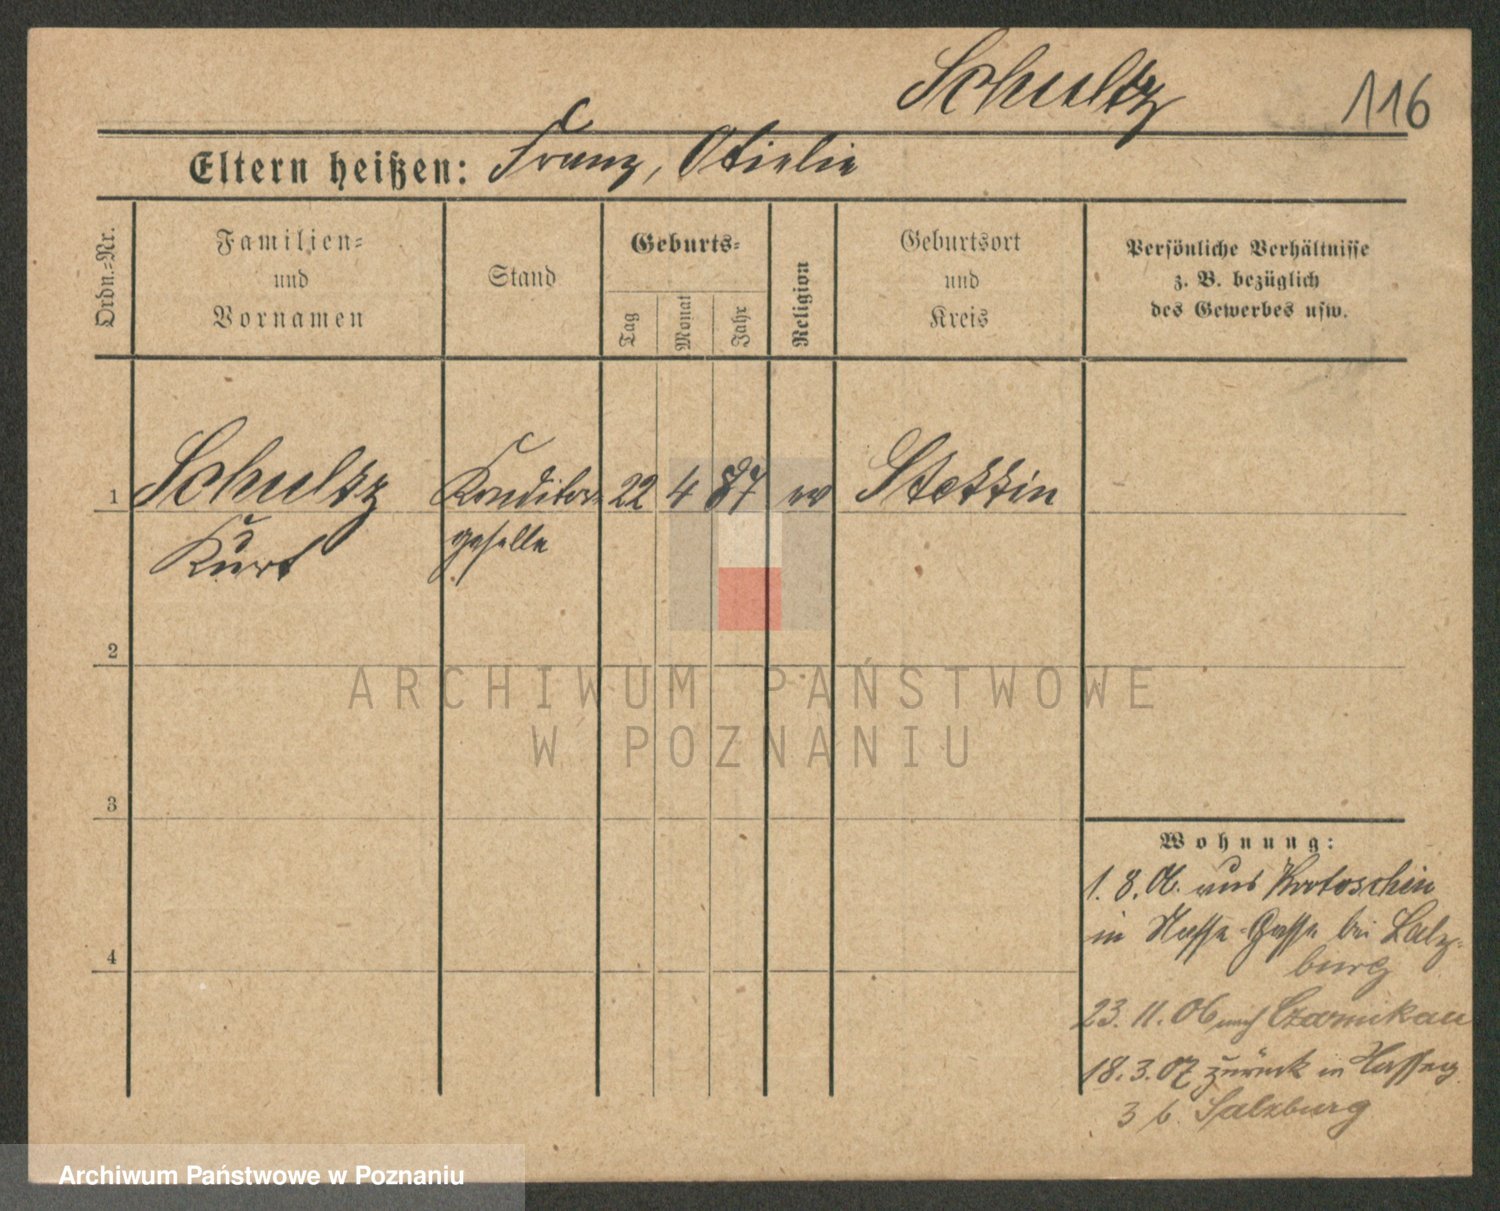 Schultz
116
Eltern heißen: Franz, Otielie
Ordn.-Nr.
Familien-
und
Vornamen
Stand
Geburts-
Tag
Monat
Jahr
Religion
Geburtsort
und
Kreis
Persönliche Verhältnisse
z. B. bezüglich
des Gewerbes usw.
1 Schultz Konditor- 22 4 87 ev Stettin
Kurt geselle
2
ARCHIWUM PAŃSTWOWE
W POZNANIU
3
Wohnung:
1. 8. 06. aus Krotoschin
in Nasse Gasse bei Salz-
burg
4
23. 11. 06 nach Czarnikau
18. 3. 07 zurück in
3 b. Salzburg
Archiwum Państwowe w Poznaniu